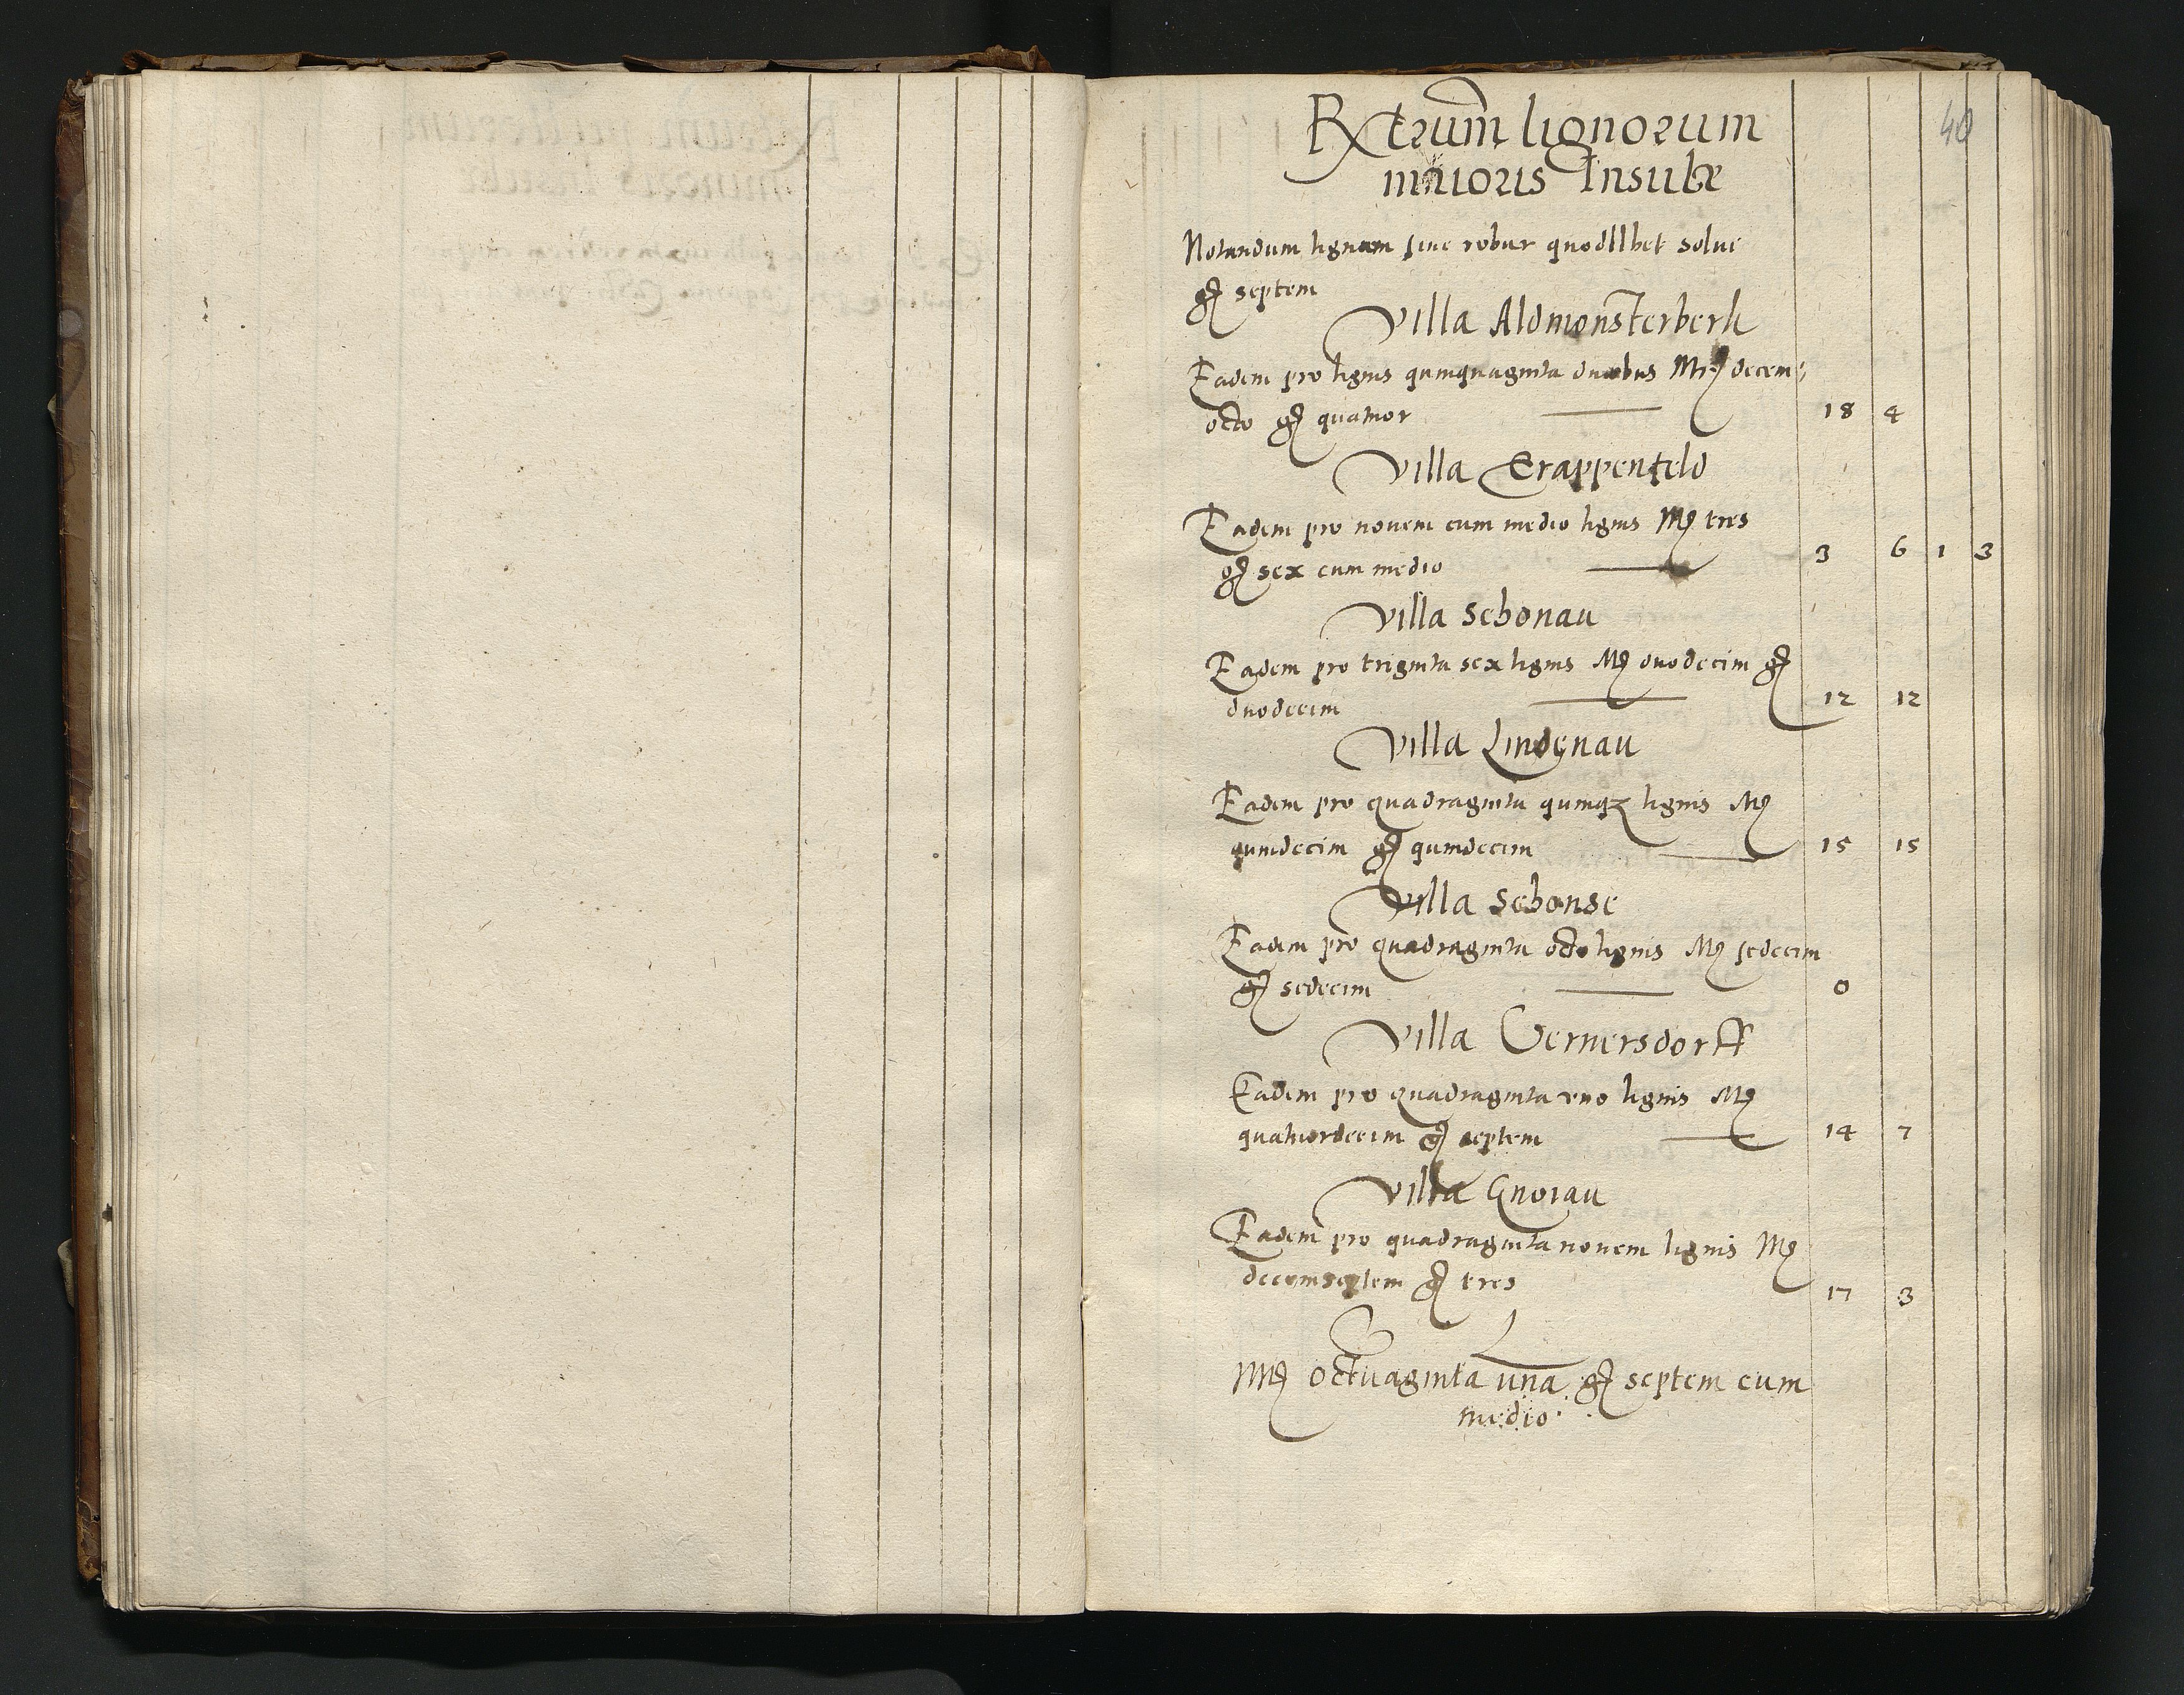 40
Rx̃trum lignorum
maioris Insulæ
Notandum lignum siue robur quodllbet solui
gʒ septem
Villa Aldmonsterberk
Eadem pro lignis quinquaginta duobus Mrʒ decem,
octo gʒ quatuor 18 4
Villa Trappenfeld
Eadem pro nouem cum medio lignis Mʒ tres
gʒ sex cum medio 3 6 1 3
Villa Schonau
Eadem pro triginta sex lignis Mʒ duodecim gʒ
duodecim 12 12
Villa Lindenau
Eadem pro quadraginta quinqʒ lignis Mʒ
quindecim gʒ quindecim 15 15
Villa Schonse
Eadem pro quadraginta octo lignis Mʒ sedecim
gʒ sedecim 0
Villa Vernersdorff
Eadem pro quadraginta vno lignis Mʒ
quatuordecim gʒ septem 14 7
Villa Gnoiau
Eadem pro quadraginta nouem lignis Mʒ
decemseptem gʒ tres 17 3
Mʒ octuaginta una gʒ septem cum
medio